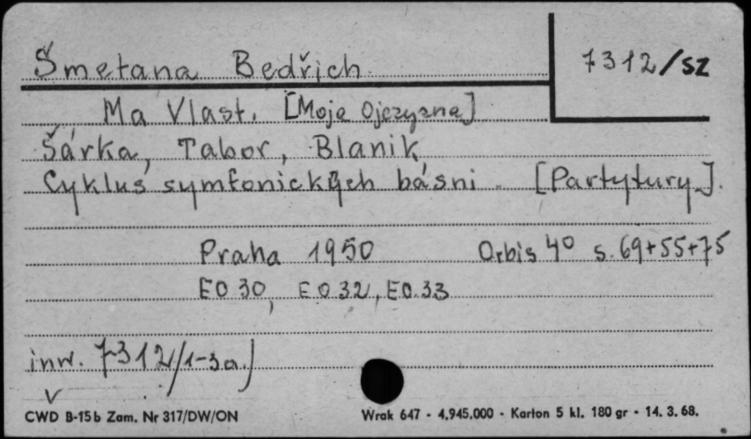 Šmetana Bedřich
7312/SZ
Ma Vlast. [Moje Ojczyzna]
Šárka, Tabor, Blanik
Cyklus symfonických básni. [Partytury].
Praha 1950 Orbis 4º s. 69+55+75
EO 30, EO 32, EO.33
inw. 7312/1-3a.)
v
CWD B-15b Zam. Nr 317/DW/ON
Wrak 647 - 4.945.000 - Karton 5 kl. 180 gr - 14. 3. 68.